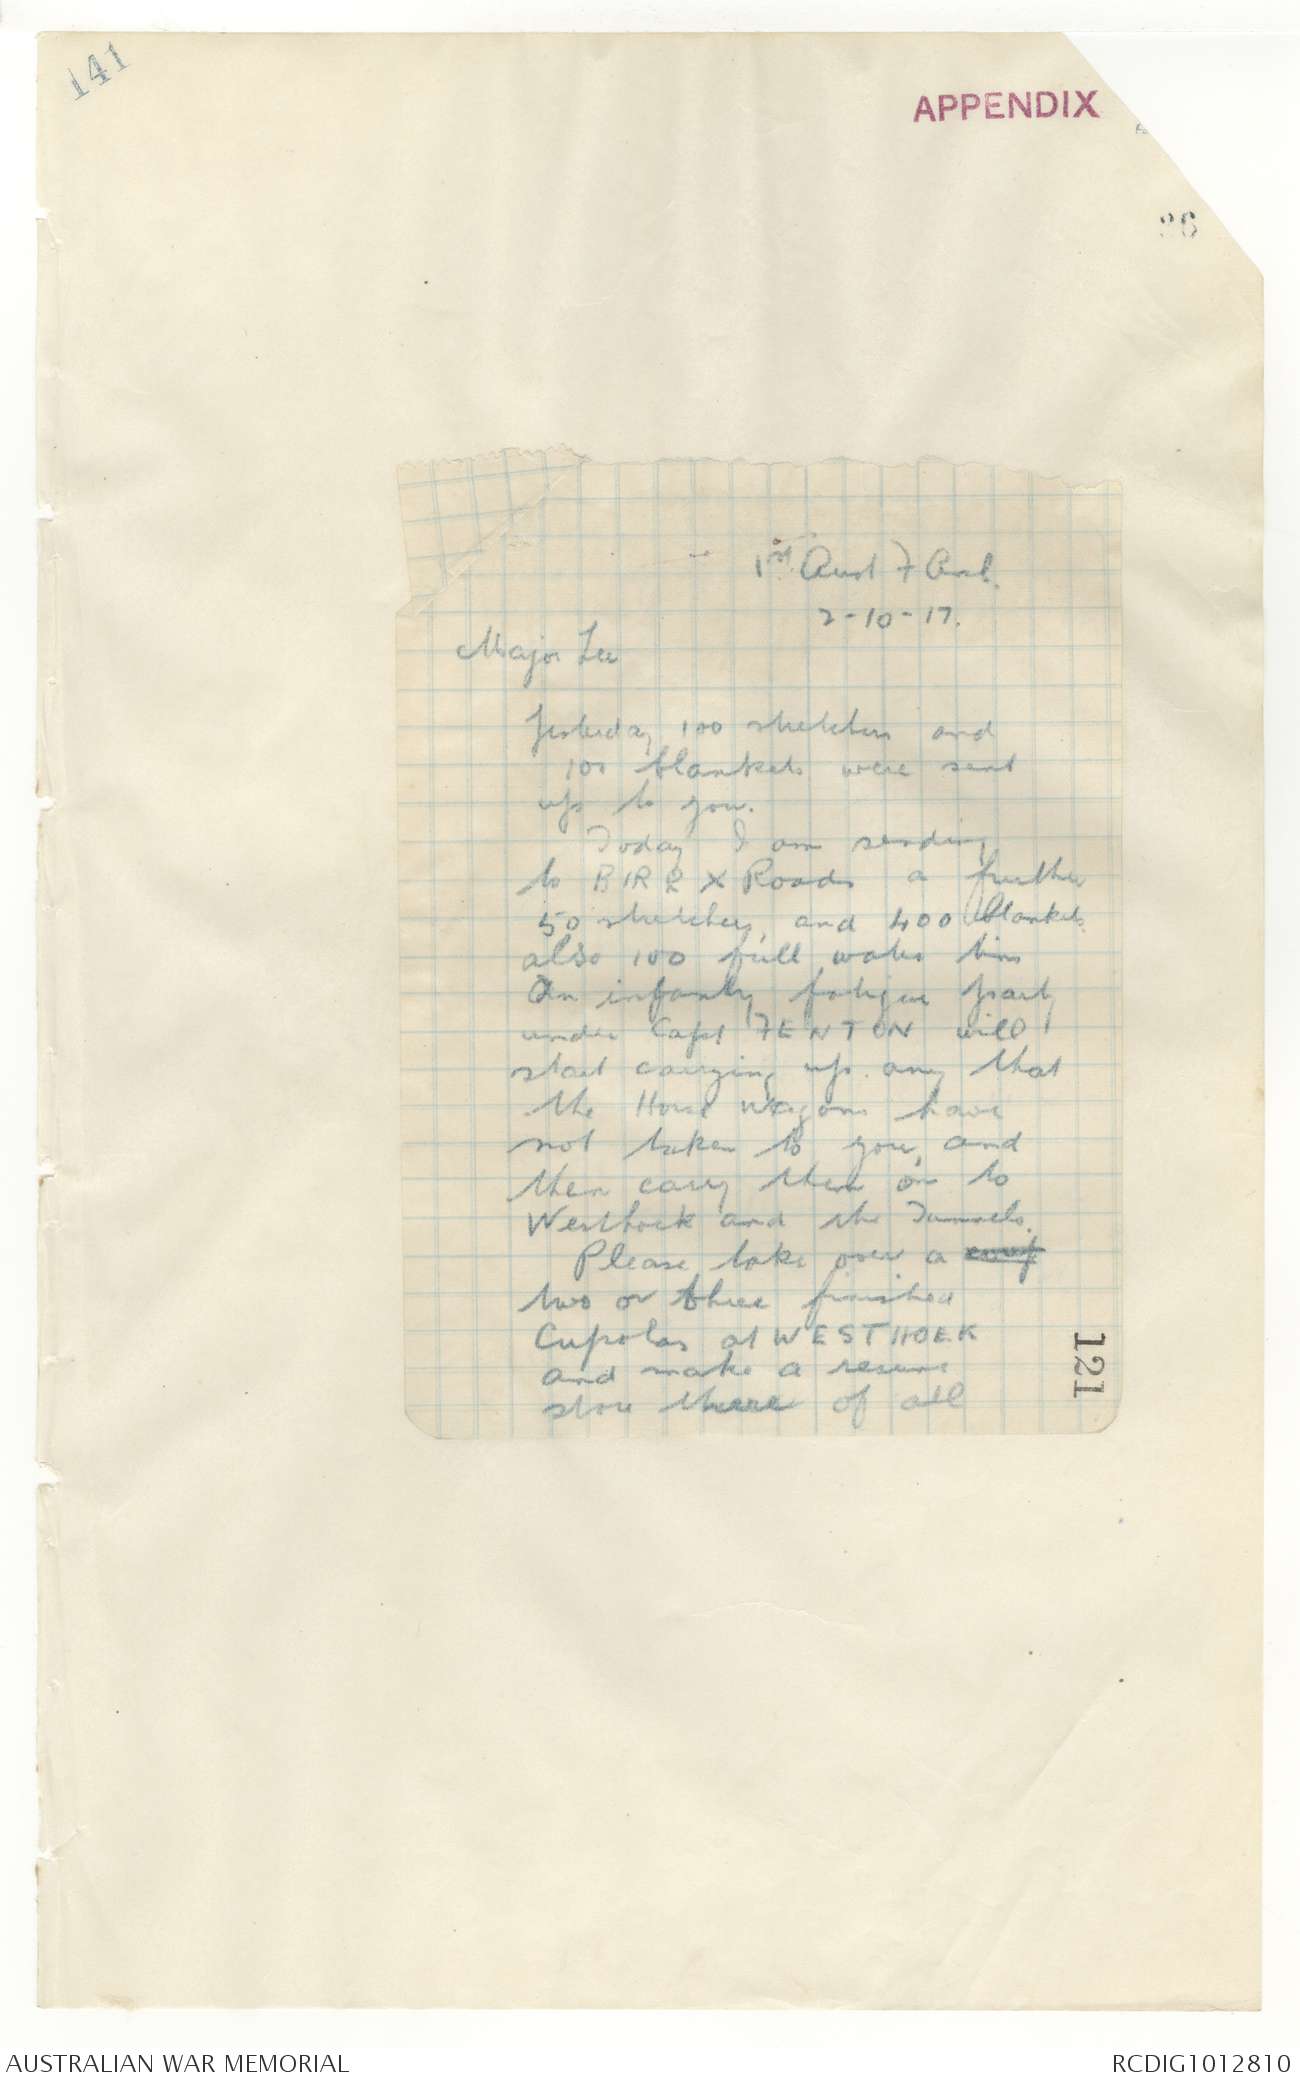 141
APPENDIX
36
1st Aust F Amb.
2-10-17.
Major Lee
Yesterday 100 stretchers and
100 blankets were sent
up to you.
Today I am sending
to BIRR X Roads a further
50 stretchers, and 400 blankets
also 100 full water tins
An infantry fatigue party
under Capt FENTON will
start carrying up any that
the Horse Wagons have
not taken to you, and
then carry them on to
Westhoek and the Tunnels.
Please take over a
two or three finished
Cupolas at WESTHOEK
and make a reserve
store there of all
121
AUSTRALIAN WAR MEMORIAL
RCDIG1012810